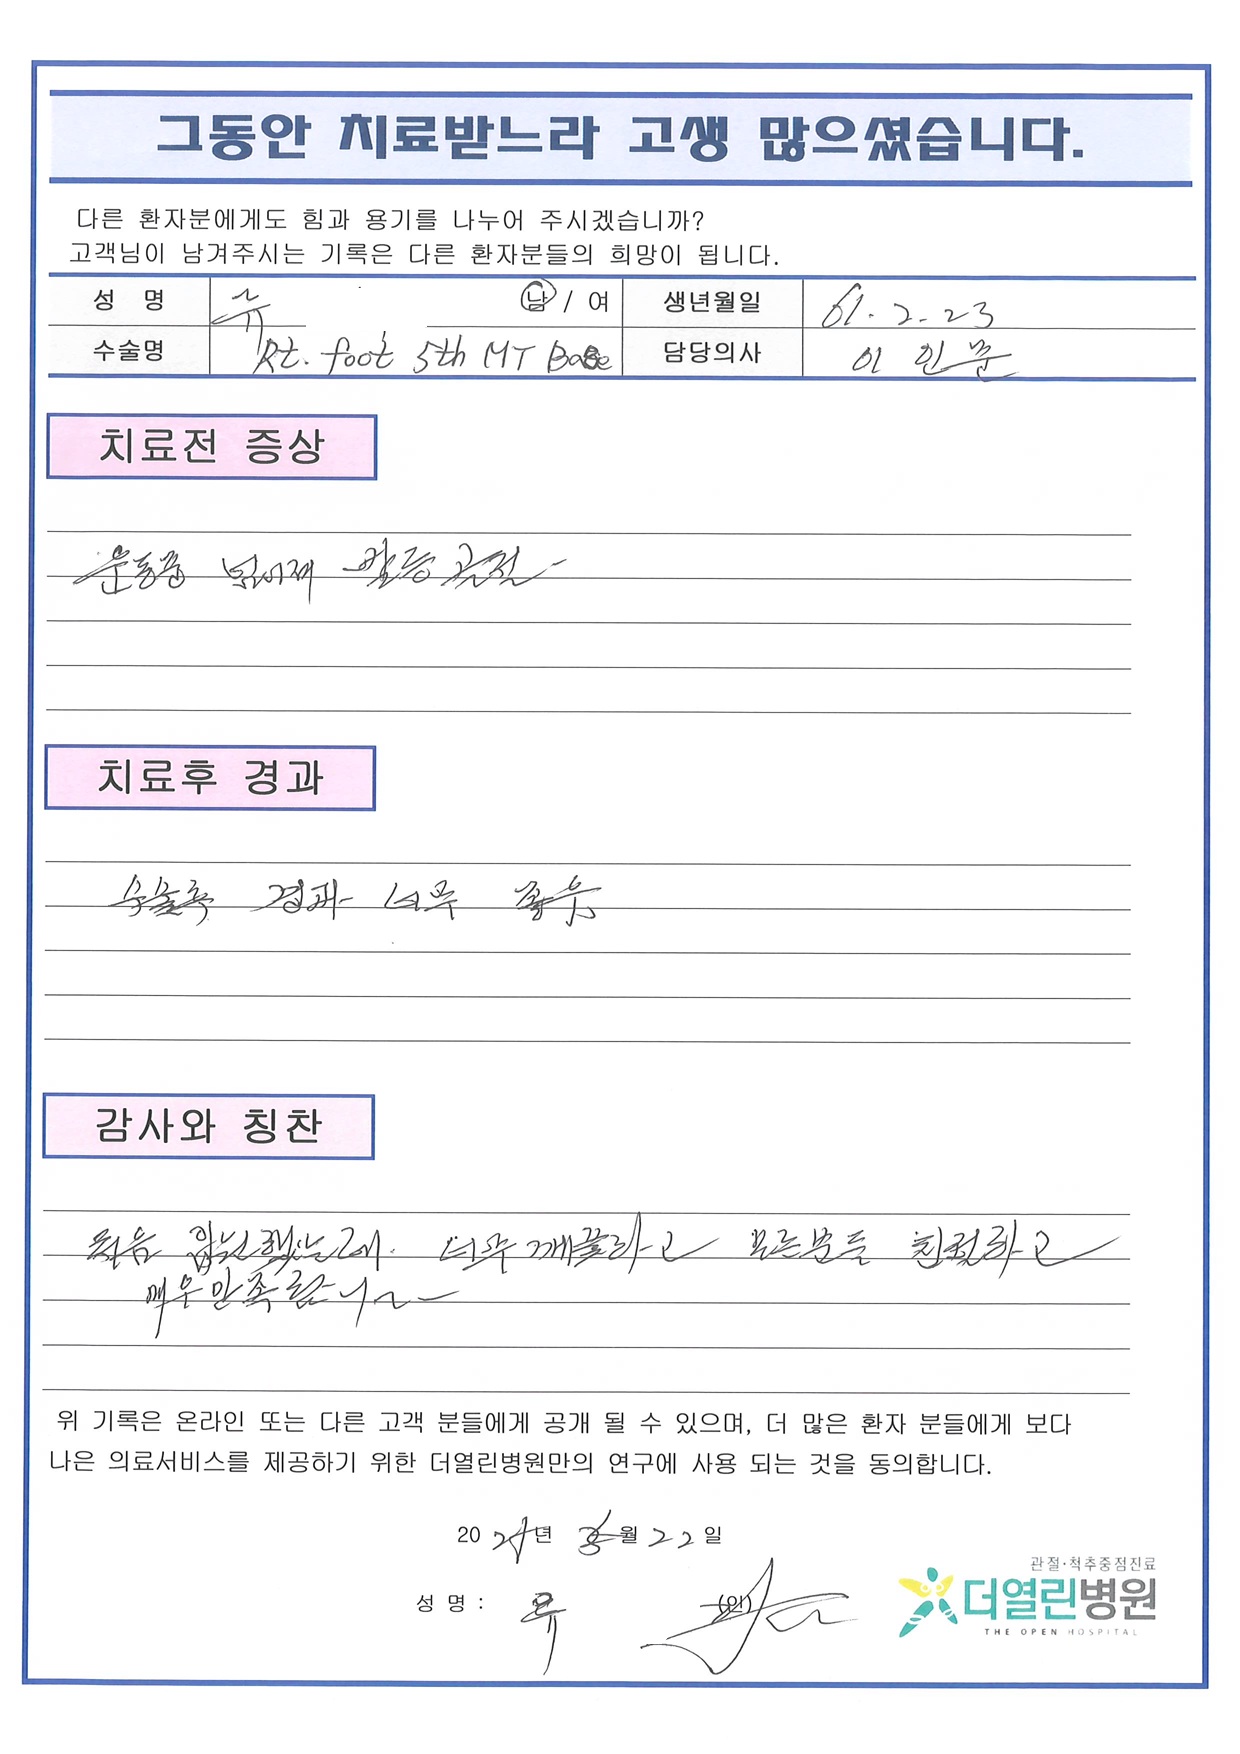 그동안 치료받느라 고생 많으셨습니다.
다른 환자분에게도 힘과 용기를 나누어 주시겠습니까?
고객님이 남겨주시는 기록은 다른 환자분들의 희망이 됩니다.
성 명 유 남 / 여 생년월일 61. 2. 23
수술명 Rt. foot 5th MT Base 담당의사 이 인 문
치료전 증상
운동중 넘어져 발등 골절
치료후 경과
수술후 경과 너무 좋음
감사와 칭찬
처음 입원했는데 너무 깨끗하고 모든분들 친절하고
매우만족합니다
위 기록은 온라인 또는 다른 고객 분들에게 공개 될 수 있으며, 더 많은 환자 분들에게 보다
나은 의료서비스를 제공하기 위한 더열린병원만의 연구에 사용 되는 것을 동의합니다.
20 년 월 22 일
성 명 : 유 (인)
관절·척추중점진료
더열린병원
THE OPEN HOSPITAL